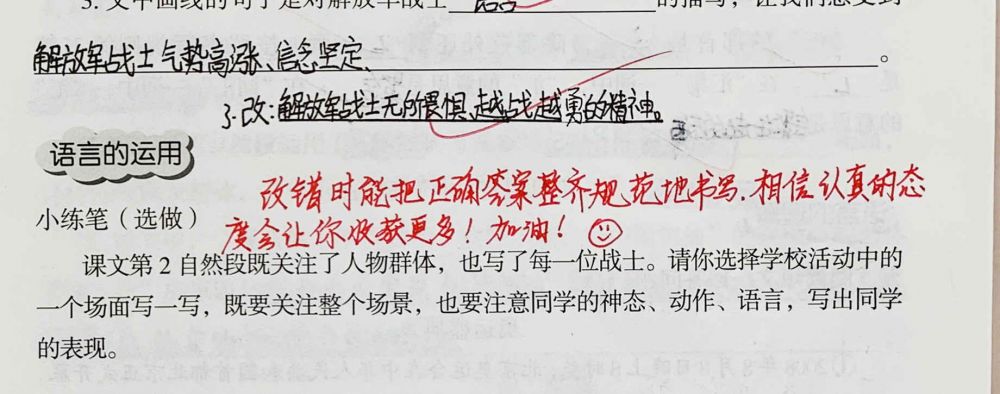 3. 文中画线的句子是对解放军战士 语言 的描写，让我们感受到
解放军战士气势高涨、信念坚定、。
3.改:解放军战士无所畏惧、越战越勇的精神。
语言的运用
改错时能把正确答案整齐规范地书写.相信认真的态
小练笔（选做）
度会让你收获更多！加油！
课文第 2 自然段既关注了人物群体，也写了每一位战士。请你选择学校活动中的
一个场面写一写，既要关注整个场景，也要注意同学的神态、动作、语言，写出同学
的表现。